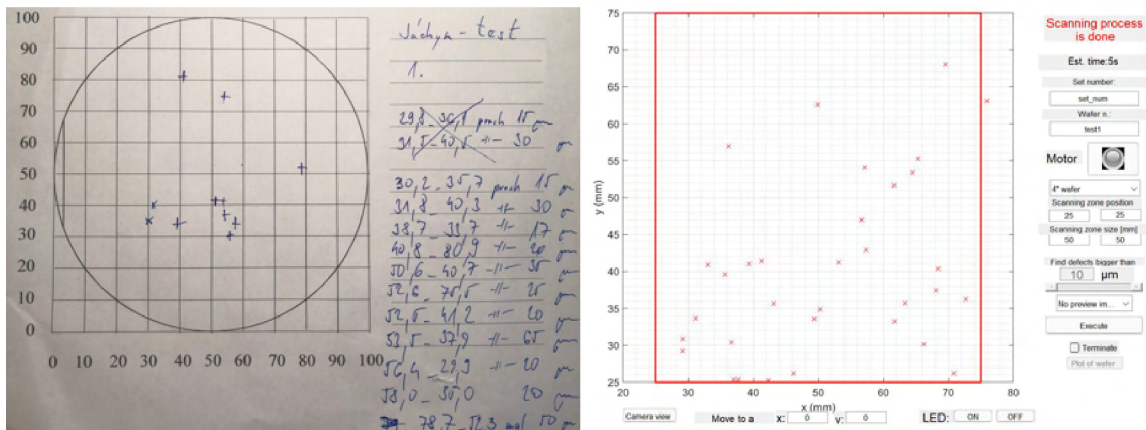 100
90
80
70
60
50
40
30
20
10
0
0 10 20 30 40 50 60 70 80 90 100
Jáchym - test
1.
30,2 - 35,7 prach 15 μm
31,8 - 40,3 -||- 30 μm
38,7 - 33,7 -||- 17 μm
40,8 - 80,9 -||- 20 μm
50,6 - 40,7 -||- 35 μm
52,6 - 75,5 -||- 25 μm
52,5 - 41,2 -||- 20 μm
53,5 - 37,9 -||- 65 μm
56,4 - 29,9 -||- 20 μm
58,0 - 35,0 20 μm
78,7 - 52,3 50 μm
75
70
65
60
55
50
45
40
35
30
25
20 30 40 50 60 70 80
y (mm)
x (mm)
Camera view
Move to a x: 0 y: 0
LED: ON OFF
Scanning process
is done
Est. time:5s
Set number:
set_num
Wafer n.:
test1
Motor
4" wafer
Scanning zone position
25 25
Scanning zone size [mm]
50 50
Find defects bigger than
10 μm
No preview im...
Execute
Terminate
Plot of wafer